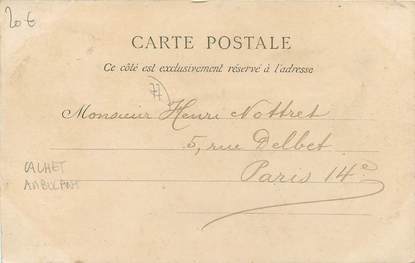 20 €
CARTE POSTALE
Ce côté est exclusivement réservé à l'adresse
77
Monsieur Henri Nottret
5, rue Delbet
Paris 14e
CACHET
AMBULANT